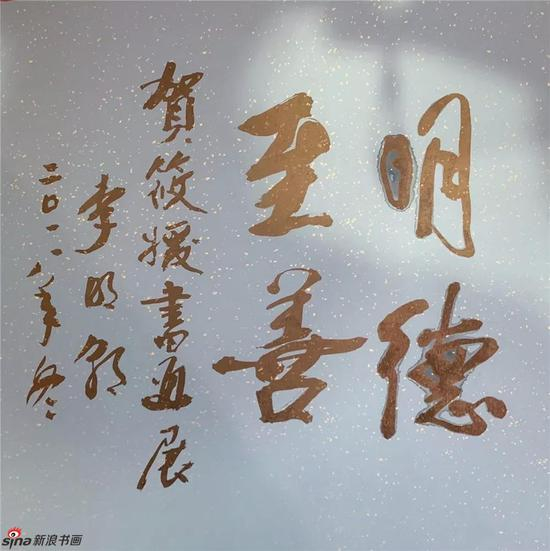 明德
至善
賀筱書展
李明
二〇一八年冬
sina新浪书画